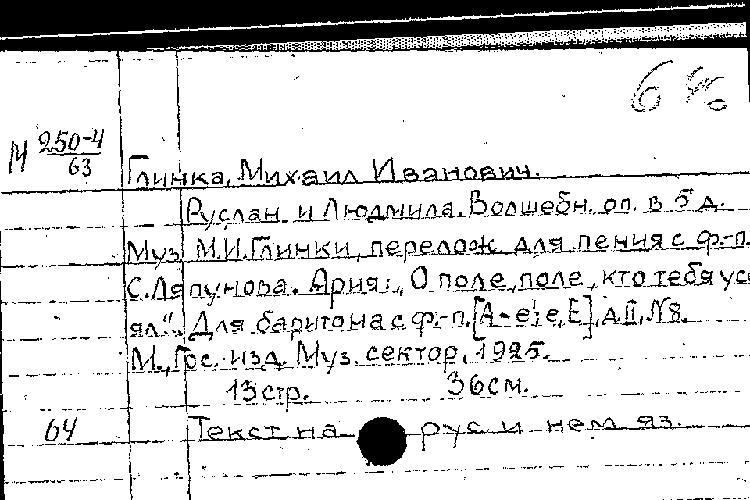 М 250-4
63
Глинка, Михаил Иванович.
Руслан и Людмила. Волшебн. оп. в 5 д.
Муз М.И.Глинки, перелож для пения с ф.-п.
С.Ляпунова. Ария: „О поле, поле, кто тебя усе
ял". Для баритона с ф.-п. [A-e'; e, E], д.II, №8.
М., Гос. изд. Муз. сектор, 1925.
13 стр. 36 см.
64 Текст на рус и нем яз.